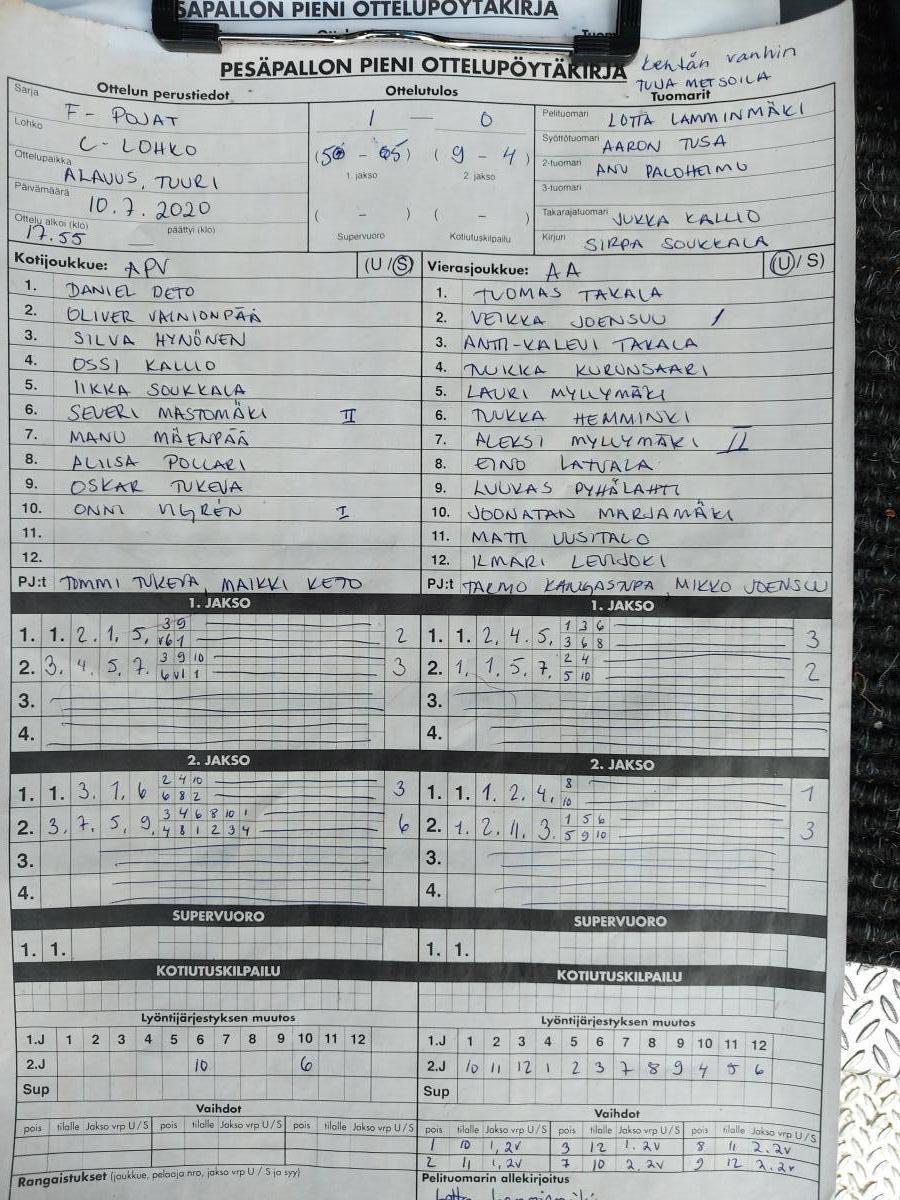 SAPALLON PIENI OTTELUPÖYTÄKIRJA
PESÄPALLON PIENI OTTELUPÖYTÄKIRJA
kentän vanhin
TUIJA METSOILA
Sarja Ottelun perustiedot
F - POJAT
Lohko
C - LOHKO
Ottelupaikka
ALAVUS, TUURI
Päivämäärä
10.7.2020
Ottelu alkoi (klo) päättyi (klo)
17.55
Ottelutulos
1 — 0
( 5 - 5 ) ( 9 - 4 )
1. jakso 2. jakso
( - ) ( - )
Supervuoro Kotiutuskilpailu
Tuomarit
Pelituomari LOTTA LAMMINMÄKI
Syöttötuomari AARON TUSA
2-tuomari ANU PALOHEIMO
3-tuomari
Takarajatuomari JUKKA KALLIO
Kirjuri SIRPA SOUKKALA
Kotijoukkue: APV (U / S)
1. DANIEL DETO
2. OLIVER VAINIONPÄÄ
3. SILVA HYNÖNEN
4. OSSI KALLIO
5. IIKKA SOUKKALA
6. SEVERI MASTOMÄKI II
7. MANU MÄENPÄÄ
8. ALIISA POLLARI
9. OSKAR TUKEVA
10. ONNI VIGRÉN I
11.
12.
PJ:t TOMMI TUKEVA, MAIKKI KETO
Vierasjoukkue: AA (U / S)
1. TUOMAS TAKALA
2. VEIKKA JOENSUU /
3. ANTTI-KALEVI TAKALA
4. TUUKKA KURUNSAARI
5. LAURI MYLLYMÄKI
6. TUUKKA HEMMINKI
7. ALEKSI MYLLYMÄKI II
8. EINO LATVALA
9. LUUKAS PYHÄLAHTI
10. JOONATAN MARJAMÄKI
11. MATTI UUSITALO
12. ILMARI LEVIJOKI
PJ:t TARMO KANGASTUPA, MIKKO JOENSUU
1. JAKSO
1. 1. 2. 1. 5. 3 9 2
v6 1
2. 3. 4. 5. 7. 3 9 10 3
6 v1 1
3.
4.
1. JAKSO
1. 1. 2. 4. 5. 1 3 6 3
3 6 8
2. 1. 1. 5. 7. 2 4 2
5 10
3.
4.
2. JAKSO
1. 1. 3. 1. 6 2 4 10 3
6 8 2
2. 3. 7. 5. 9. 3 4 6 8 10 1 6
4 8 1 2 3 4
3.
4.
2. JAKSO
1. 1. 1. 2. 4. 8 1
10
2. 1. 2. 11. 3. 1 5 6 3
5 9 10
3.
4.
SUPERVUORO
1. 1.
SUPERVUORO
1. 1.
KOTIUTUSKILPAILU
KOTIUTUSKILPAILU
Lyöntijärjestyksen muutos
1.J 1 2 3 4 5 6 7 8 9 10 11 12
2.J 10 6
Sup
Lyöntijärjestyksen muutos
1.J 1 2 3 4 5 6 7 8 9 10 11 12
2.J 10 11 12 1 2 3 7 8 9 4 5 6
Sup
Vaihdot
pois tilalle Jakso vrp U / S pois tilalle Jakso vrp U / S pois tilalle Jakso vrp U / S
Vaihdot
pois tilalle Jakso vrp U / S pois tilalle Jakso vrp U / S pois tilalle Jakso vrp U / S
1 10 1, 2v 3 12 1. 2v 8 11 2. 2v
2 11 1, 2v 7 10 2. 2v 9 12 2. 2v
Rangaistukset (joukkue, pelaaja nro, jakso vrp U / S ja syy)
Pelituomarin allekirjoitus